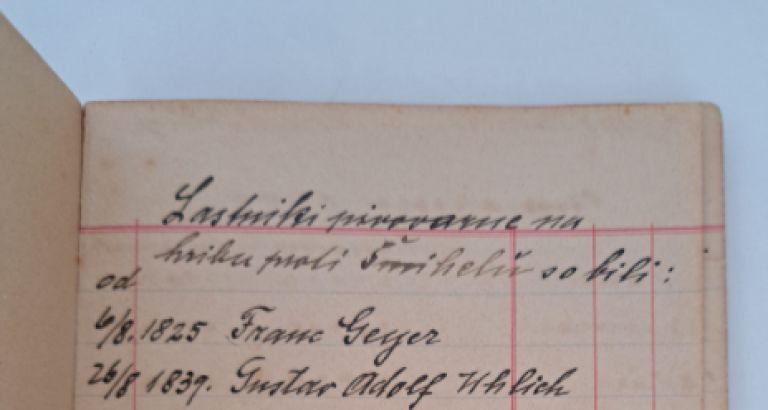 Lastniki pivovarne na
hribu proti
so bili:
od
6/8. 1825 Franc Geyer
26/8 1839. Gustav Adolf Uhlich